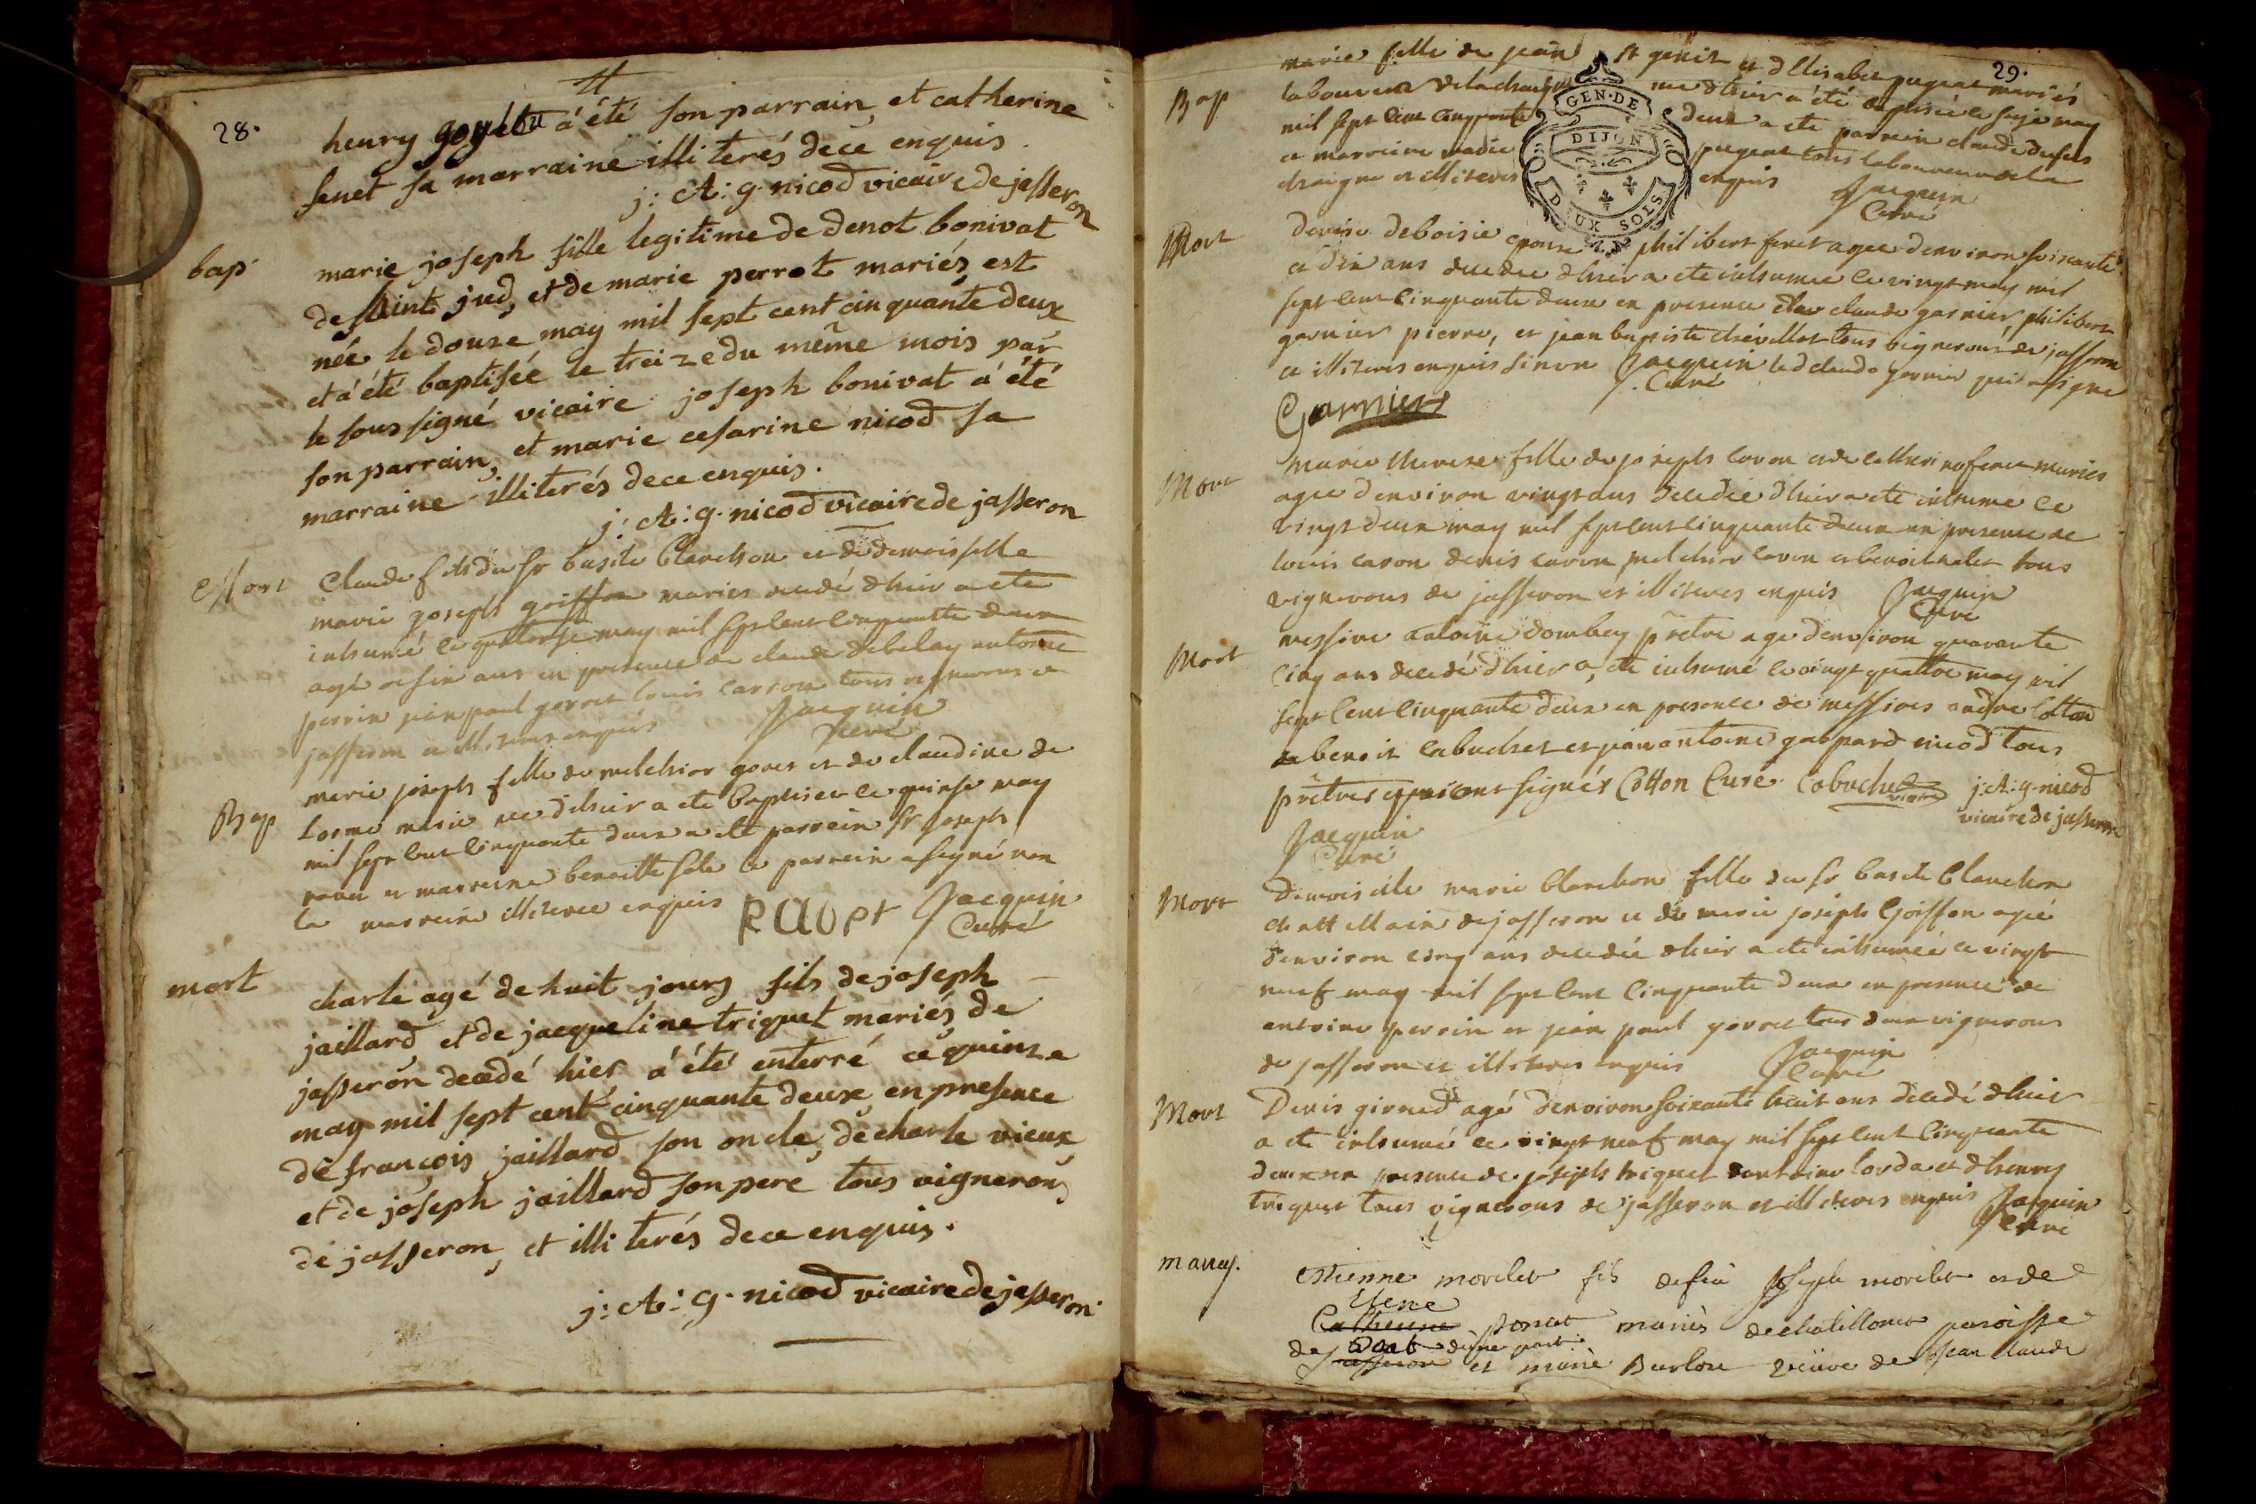 28.
henry goyét á été son parrain, et catherine
fenet sa marraine illiterés de ce enquis.
j: A: g. nicod vicaire de jasseron
bap.
marie joseph fille legitime de denot bonivat
de saint jud, et de marie perrot mariés, est
née le douze may mil sept cent cinquante deux
et á été baptisée le treize du même mois par
le soussigné vicaire joseph bonivat á été
son parrain, et marie cesarine nicod sa
marraine illiterés de ce enquis.
j: A: g. nicod vicaire de jasseron
Mort
Claude fils du sr basile blanchon et de demoisselle
marie joseph goiffon mariés decedé dhier a ete
inhumé le quatorse may mil sept cent cinquante deux
agé de six ans en presence de claude debelay antoine
perrin jean paul gorret louis carron tous vignerons de
jasseron et illiteres enquis Jacquin
Curé
Bap
marie joseph fille de melchior goret et de claudine de
née dhier a ete baptisée le quinse may
mil sept cent cinquante deux a ete parrein sr joseph
et marreine benoitte le parrein a signé non
la marreine illiteree enquis Jacquin
Curé
mort
charle agé de huit jours fils de joseph
jaillard et de jacqueline triquet mariés de
jasseron decedé hier á été enterré ce quinze
may mil sept cent cinquante deux en presence
de françois jaillard son oncle, de charle vieux
et de joseph jaillard son pere tous vignerons
de jasseron, et illiterés de ce enquis.
j: A: g. nicod vicaire de jasseron.
29.
Bap
marie fille de jean st genis et d Elisabet pugeat mariés
laboureur de la née dhier a été baptisée le seize may
mil sept cent cinquante deux a ete parrein claude
et marreine marie pugeat tous laboureurs de la
et illiteres enquis Jacquin
Curé
GEN. DE
DIJON
DEUX SOLS
Mort
Denise deboisie epouse philibert feret agee denviron soixante
et dix ans decedee dhier a ete inhumee le vingt may mil
sept cent cinquante deux en presence de claude garnier, philibert
garnier pierre, et jean baptiste chevillot tous vignerons de jasseron
et illiteres enquis sinon Jacquin led claude garnier qui a signe
Curé
Garnier
Mort
Marie therese fille de joseph caron et de catherine feret mariés
agee denviron vingt ans decedée dhier a ete inhumé le
vingt deux may mil sept cent cinquante deux en presence de
louis caron denis caron melchior caron et benoit tous
vignerons de jasseron et illiteres enquis Jacquin
Curé
Mort
messire antoine dombey prêtre agé denviron quarante
cinq ans decedé dhier a ete inhumé le vingt quattre may mil
sept cent cinquante deux en presence de messires cotton
benoit cabuchet et jean antoine gaspard nicod tous
prêtres qui ont signés Cotton Curé Cabuchet vicaire j: A: g. nicod
vicaire de jasseron
Jacquin
Curé
Mort
Demoiselle marie blanchon fille du sr basile blanchon
chattellain de jasseron et de marie joseph Goiffon agée
denviron cinq ans decedée dhier a ete inhumée le vingt
neuf may mil sept cent cinquante deux en presence de
antoine perrin et jean paul gorret tous deux vignerons
de jasseron et illiteres enquis Jacquin
Curé
Mort
Denis girued agé denviron soixante huit ans decedé dhier
a ete inhumé le vingt neuf may mil sept cent cinquante
deux en presence de joseph triquet dantoine et dhenry
triquet tous vignerons de jasseron et illiteres enquis Jacquin
Curé
mariag.
Etienne morelet fils de feu Joseph morelet et de
Catherine poncet mariés de chatillonet paroisse
de Jasseron d'une part et marie Burlon veuve de Jean Claude